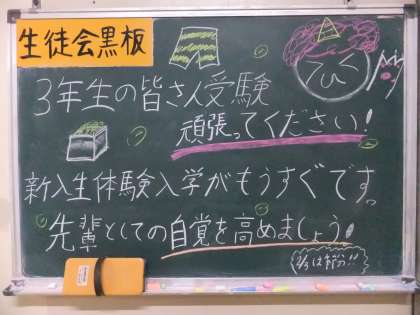 生徒会黒板
3年生の皆さん受験
頑張ってください!
新入生体験入学がもうすぐですっ
先輩としての自覚を高めましょう!
2/3は節分!!